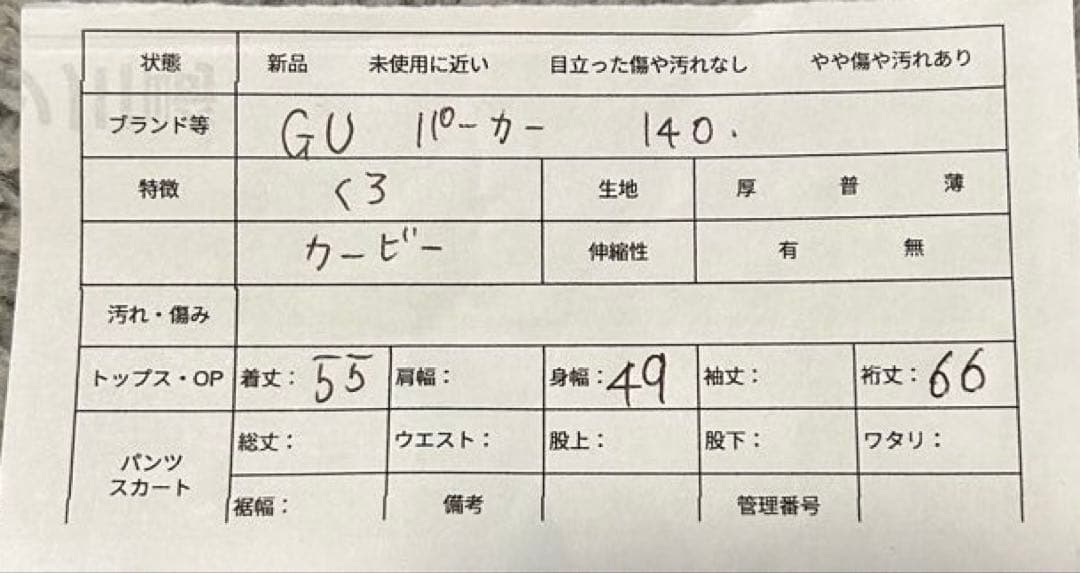 状態 新品 未使用に近い 目立った傷や汚れなし やや傷や汚れあり
ブランド等 GU パーカー 140.
特徴 くろ 生地 厚 普 薄
カービー 伸縮性 有 無
汚れ・傷み
トップス・OP 着丈: 55 肩幅: 身幅: 49 袖丈: 裄丈: 66
パンツ スカート 総丈: ウエスト: 股上: 股下: ワタリ:
裾幅: 備考 管理番号